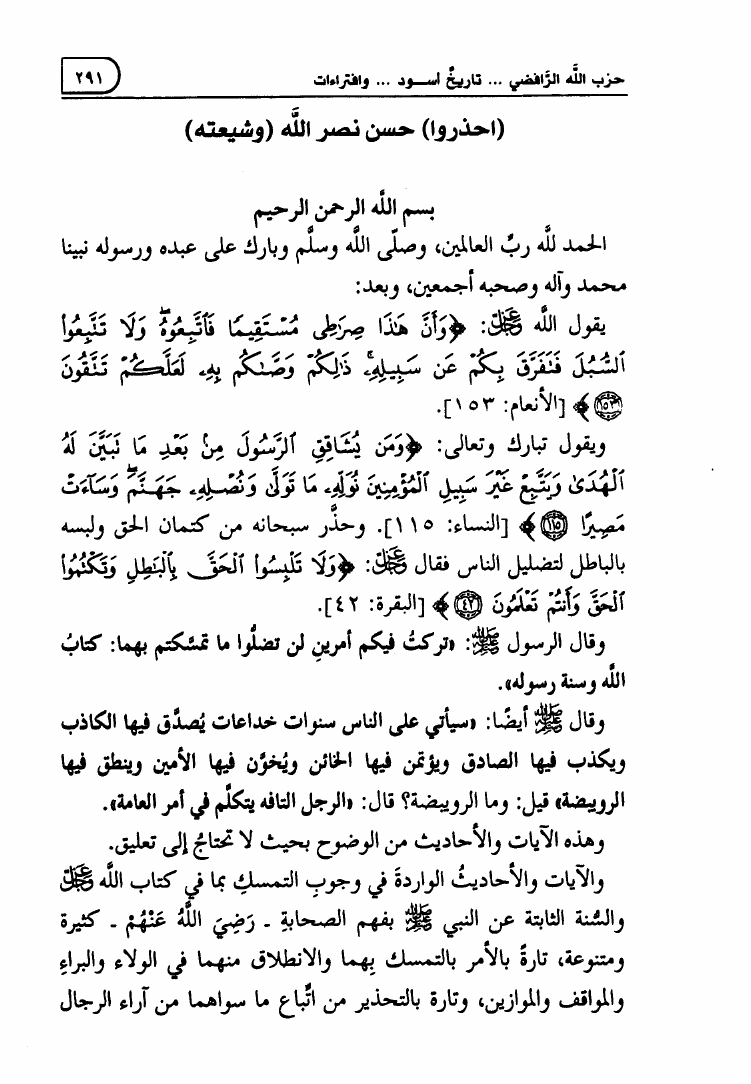 حزب اللَّه الرَّافضي ... تاريخٌ أسـود ... وافتراءات ٢٩١
(احذروا) حسن نصر اللَّه (وشيعته)
بسم اللَّه الرحمن الرحيم
الحمد للَّه ربِّ العالمين، وصلّى اللَّه وسلَّم وبارك على عبده ورسوله نبينا
محمد وآله وصحبه أجمعين، وبعد:
يقول اللَّه عَزَّ وَجَلَّ: ﴿وَأَنَّ هَٰذَا صِرَٰطِى مُسْتَقِيمًا فَٱتَّبِعُوهُ ۖ وَلَا تَتَّبِعُوا۟
ٱلسُّبُلَ فَتَفَرَّقَ بِكُمْ عَن سَبِيلِهِۦ ۚ ذَٰلِكُمْ وَصَّىٰكُم بِهِۦ لَعَلَّكُمْ تَتَّقُونَ
١٥٣﴾ [الأنعام: ١٥٣].
ويقول تبارك وتعالى: ﴿وَمَن يُشَاقِقِ ٱلرَّسُولَ مِنۢ بَعْدِ مَا تَبَيَّنَ لَهُ
ٱلْهُدَىٰ وَيَتَّبِعْ غَيْرَ سَبِيلِ ٱلْمُؤْمِنِينَ نُوَلِّهِۦ مَا تَوَلَّىٰ وَنُصْلِهِۦ جَهَنَّمَ ۖ وَسَآءَتْ
مَصِيرًا ١١٥﴾ [النساء: ١١٥]. وحذَّر سبحانه من كتمان الحق ولبسه
بالباطل لتضليل الناس فقال عَزَّ وَجَلَّ: ﴿وَلَا تَلْبِسُوا۟ ٱلْحَقَّ بِٱلْبَٰطِلِ وَتَكْتُمُوا۟
ٱلْحَقَّ وَأَنتُمْ تَعْلَمُونَ ٤٢﴾ [البقرة: ٤٢].
وقال الرسول ﷺ: «تركتُ فيكم أمرينِ لن تضلُّوا ما تمسَّكتم بهما: كتابُ
اللَّه وسنة رسوله».
وقال ﷺ أيضًا: «سيأتي على الناس سنوات خداعات يُصدَّق فيها الكاذب
ويكذب فيها الصادق ويؤتمن فيها الخائن ويُخوَّن فيها الأمين وينطق فيها
الرويبضة» قيل: وما الرويبضة؟ قال: «الرجل التافه يتكلَّم في أمر العامة».
وهذه الآيات والأحاديث من الوضوح بحيث لا تحتاجُ إلى تعليق.
والآيات والأحاديثُ الواردةَ في وجوبِ التمسكِ بما في كتاب اللَّه عَزَّ وَجَلَّ
والسُّنة الثابتة عن النبي ﷺ بفهم الصحابةِ ـ رَضِيَ اللَّهُ عَنْهُمْ ـ كثيرة
ومتنوعة، تارةً بالأمر بالتمسك بِهما والانطلاق منهما في الولاء والبراءِ
والمواقف والموازين، وتارة بالتحذير من اتِّباع ما سواهما من آراء الرجال